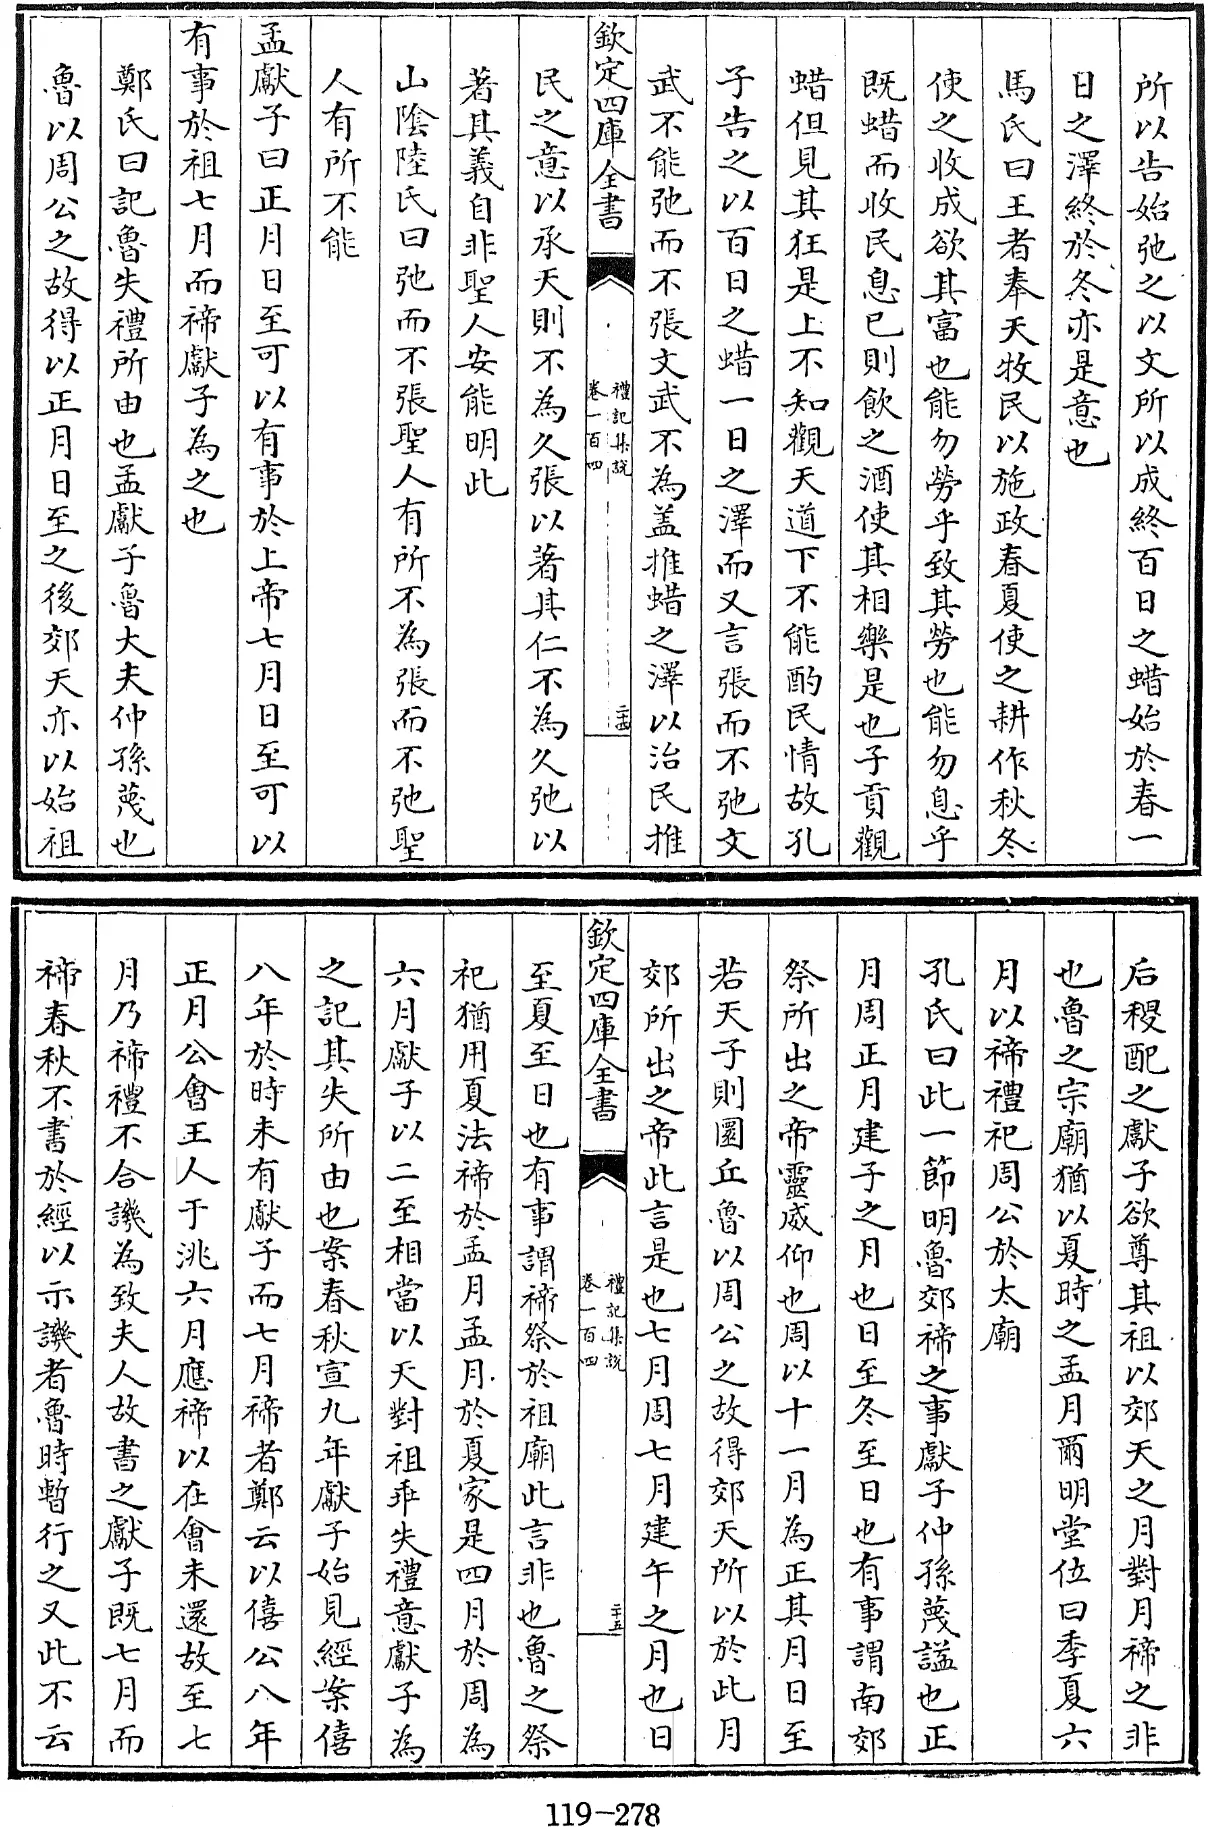 所以告始弛之以文所以成終百日之蜡始於春一
日之澤終於冬亦是意也
馬氏曰王者奉天牧民以施政春夏使之耕作秋冬
使之收成欲其富也能勿勞乎致其勞也能勿息乎
既蜡而收民息已則飲之酒使其相樂是也子貢觀
蜡但見其狂是上不知觀天道下不能酌民情故孔
子告之以百日之蜡一日之澤而又言張而不弛文
武不能弛而不張文武不為蓋推蜡之澤以治民推
欽定四庫全書
禮記集說
卷一百四
二十四
民之意以承天則不為久張以著其仁不為久弛以
著其義自非聖人安能明此
山陰陸氏曰弛而不張聖人有所不為張而不弛聖
人有所不能
孟獻子曰正月日至可以有事於上帝七月日至可以
有事於祖七月而禘獻子為之也
鄭氏曰記魯失禮所由也孟獻子魯大夫仲孫蔑也
魯以周公之故得以正月日至之後郊天亦以始祖
后稷配之獻子欲尊其祖以郊天之月對月禘之非
也魯之宗廟猶以夏時之孟月爾明堂位曰季夏六
月以禘禮祀周公於太廟
孔氏曰此一節明魯郊禘之事獻子仲孫蔑諡也正
月周正月建子之月也日至冬至日也有事謂南郊
祭所出之帝靈威仰也周以十一月為正其月日至
若天子則圜丘魯以周公之故得郊天所以於此月
郊所出之帝此言是也七月周七月建午之月也日
欽定四庫全書
禮記集說
卷一百四
二十五
至夏至日也有事謂禘祭於祖廟此言非也魯之祭
祀猶用夏法禘於孟月孟月於夏家是四月於周為
六月獻子以二至相當以天對祖乖失禮意獻子為
之記其失所由也案春秋宣九年獻子始見經案僖
八年於時未有獻子而七月禘者鄭云以僖公八年
正月公會王人于洮六月應禘以在會未還故至七
月乃禘禮不合譏為致夫人故書之獻子既七月而
禘春秋不書於經以示譏者魯時暫行之又此不云
119-278